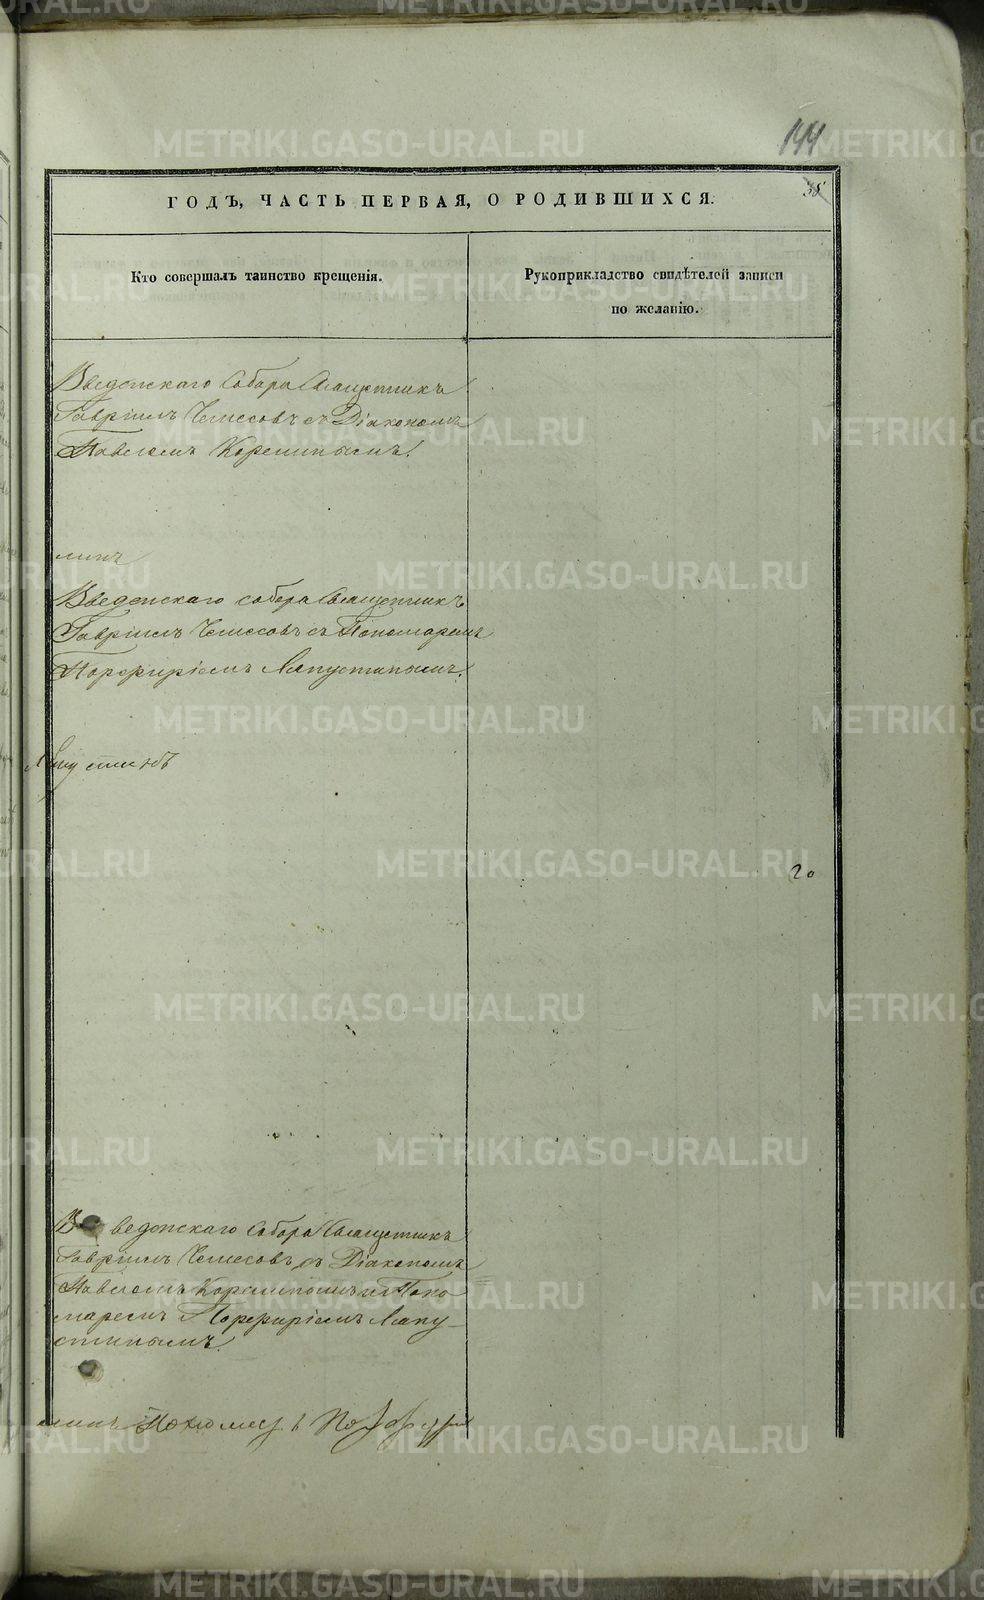 144
38
ГОДЪ, ЧАСТЬ ПЕРВАЯ, О РОДИВШИХСЯ.
Кто совершалъ таинство крещенія.
Рукоприкладство свидѣтелей записи
по желанію.
Введенскаго Собора Священникъ
Гавріилъ Чемесовъ съ Діакономъ
Павломъ
линъ
Введенскаго собора Священникъ
Гавріилъ Чемесовъ съ Пономаремъ
Порфиріемъ Лапустинымъ.
Лапустинъ
20
Введенскаго Собора Священникъ
Гавріилъ Чемесовъ съ Діакономъ
Павломъ и Поно
маремъ Порфиріемъ Лапу-
стинымъ.
линъ
METRIKI.GASO-URAL.RU